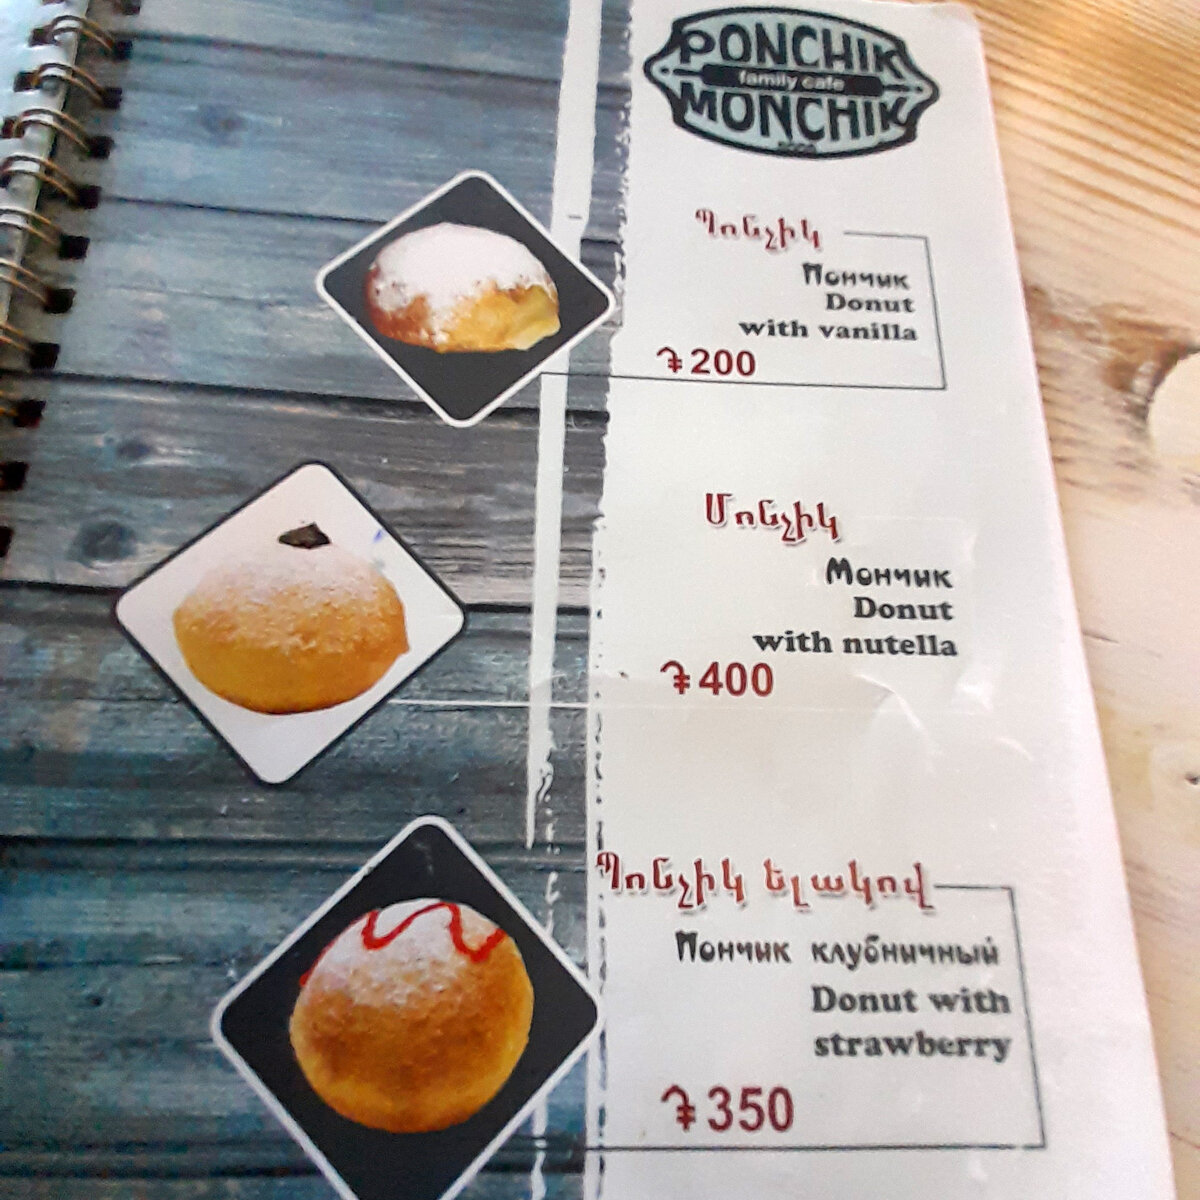 PONCHIK
family cafe
MONCHIK
Պոնչիկ
Пончик
Donut
with vanilla
֏200
Մոնչիկ
Мончик
Donut
with nutella
֏400
Պոնչիկ ելակով
Пончик клубничный
Donut with
strawberry
֏350